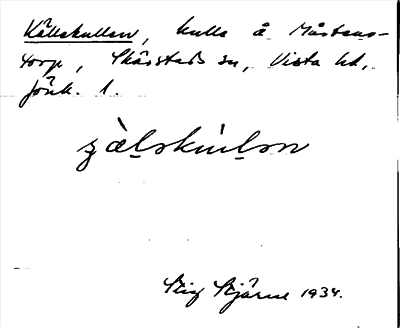 Källekullen, kulle å Måstens-
torp, Skärstads sn, Vista hd,
Jönk. l.
ʒälskulǝn
Stig Stjärne 1934.